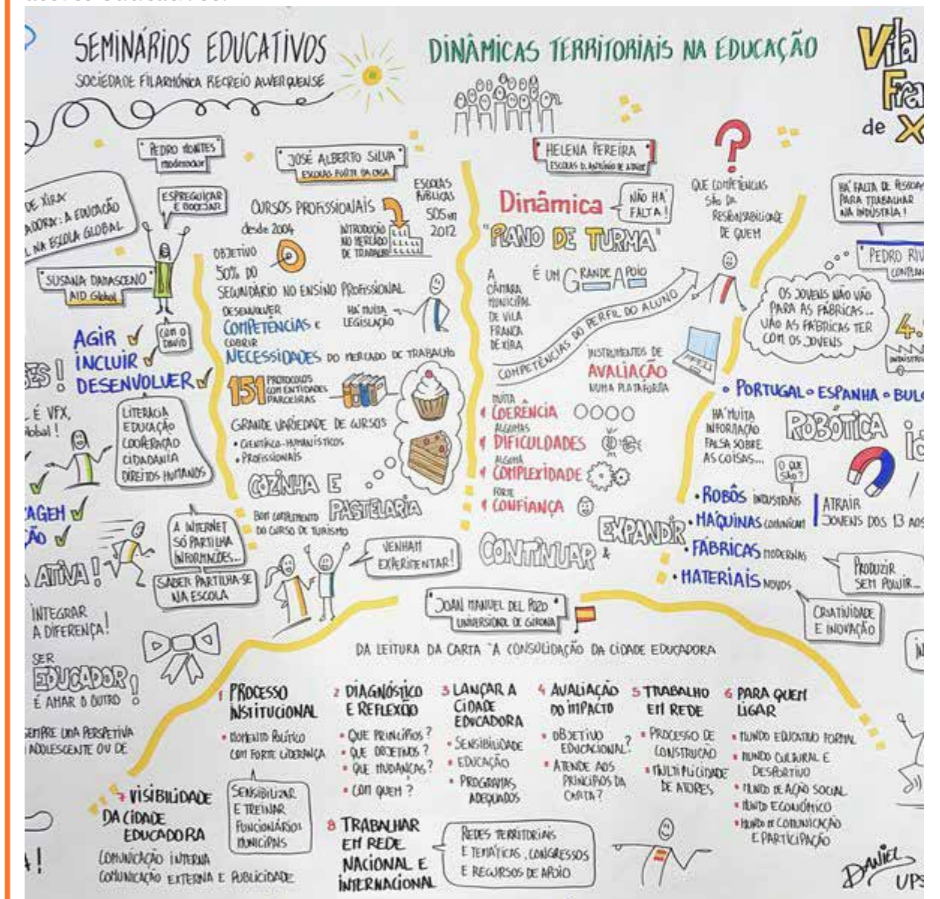 SEMINÁRIOS EDUCATIVOS
SOCIEDADE FILARMÓNICA RECREIO ALVERQUENSE
DINÂMICAS TERRITORIAIS NA EDUCAÇÃO
Vila
Fra
de X
PEDRO MONTES
moderador
ESPREGUIÇAR
E BOCEJAR
DE XIRA
ADORA: A EDUCAÇÃO
L NA ESCOLA GLOBAL
SUSANA DAMASCENO
AID Global
COM O
DAVID
AGIR
INCLUIR
DESENVOLVER
ES!
É VFX,
obal!
LITERACIA
EDUCAÇÃO
COOPERAÇÃO
CIDADANIA
DIREITOS HUMANOS
AGEM
ÃO
A INTERNET
SÓ PARTILHA
INFORMAÇÕES...
SABER PARTILHA-SE
NA ESCOLA
ATIVA!
INTEGRAR
A DIFERENÇA!
SER
EDUCADOR
É AMAR O OUTRO!
SEMPRE UMA PERSPETIVA
ADOLESCENTE OU DE
JOSÉ ALBERTO SILVA
ESCOLAS FORTE DA CASA
CURSOS PROFISSIONAIS
desde 2004
INTRODUÇÃO
NO MERCADO
DE TRABALHO
ESCOLAS
PÚBLICAS
505 em
2012
OBJETIVO
50% DO
SECUNDÁRIO NO ENSINO PROFISSIONAL
DESENVOLVER
COMPETÊNCIAS E
COBRIR
NECESSIDADES DO MERCADO DE TRABALHO
HÁ MUITA
LEGISLAÇÃO
151 PROTOCOLOS
COM ENTIDADES
PARCEIRAS
GRANDE VARIEDADE DE CURSOS
• CIENTÍFICO-HUMANÍSTICOS
• PROFISSIONAIS
COZINHA E
PASTELARIA
BOM COMPLEMENTO
DO CURSO DE TURISMO
VENHAM
EXPERIMENTAR!
HELENA PEREIRA
ESCOLAS D. ANTÓNIO DE ATAÍDE
Dinâmica
NÃO HÁ
FALTA!
"PLANO DE TURMA"
A
CÂMARA
MUNICIPAL
DE VILA
FRANCA
DE XIRA
É UM GRANDE APOIO
COMPETÊNCIAS DO PERFIL DO ALUNO
INSTRUMENTOS DE
AVALIAÇÃO
NUMA PLATAFORMA
MUITA
COERÊNCIA
ALGUMAS
DIFICULDADES
ALGUMA
COMPLEXIDADE
FORTE
CONFIANÇA
CONTINUAR &
EXPANDIR
?
QUE COMPETÊNCIAS
SÃO DA
RESPONSABILIDADE
DE QUEM
HÁ FALTA DE PESSOAS
PARA TRABALHAR
NA INDÚSTRIA!
OS JOVENS NÃO VÃO
PARA AS FÁBRICAS...
VÃO AS FÁBRICAS TER
COM OS JOVENS
4.
• PORTUGAL • ESPANHA • BUL
HÁ MUITA
INFORMAÇÃO
FALSA SOBRE
AS COISAS...
ROBÓTICA
O QUE
SÃO?
• ROBÔS INDUSTRIAIS
• MÁQUINAS COMUNICAM
• FÁBRICAS MODERNAS
• MATERIAIS NOVOS
ATRAIR
JOVENS DOS 13 AOS
PRODUZIR
SEM POLUIR...
CRIATIVIDADE
E INOVAÇÃO
JOAN MANUEL DEL POZO
UNIVERSIDADE DE GIRONA
DA LEITURA DA CARTA "A CONSOLIDAÇÃO DA CIDADE EDUCADORA
1 PROCESSO
INSTITUCIONAL
• MOMENTO POLÍTICO
COM FORTE LIDERANÇA
SENSIBILIZAR
E TREINAR
FUNCIONÁRIOS
MUNICIPAIS
2 DIAGNÓSTICO
E REFLEXÃO
• QUE PRINCÍPIOS?
• QUE OBJETIVOS?
• QUE MUDANÇAS?
• COM QUEM?
3 LANÇAR A
CIDADE
EDUCADORA
• SENSIBILIDADE
• EDUCAÇÃO
• PROGRAMAS
ADEQUADOS
4 AVALIAÇÃO
DO IMPACTO
• OBJETIVO
EDUCACIONAL?
• ATENDE AOS
PRINCÍPIOS DA
CARTA?
5 TRABALHO
EM REDE
• PROCESSO DE
CONSTRUÇÃO
• MULTIPLICIDADE
DE ATORES
6 PARA QUEM
LIGAR
• MUNDO EDUCATIVO FORMAL
• MUNDO CULTURAL E
DESPORTIVO
• MUNDO DE AÇÃO SOCIAL
• MUNDO ECONÓMICO
• MUNDO DE COMUNICAÇÃO
E PARTICIPAÇÃO
7 VISIBILIDADE
DA CIDADE
EDUCADORA
COMUNICAÇÃO INTERNA
COMUNICAÇÃO EXTERNA E PUBLICIDADE
8 TRABALHAR
EM REDE
NACIONAL E
INTERNACIONAL
REDES TERRITORIAIS
E TEMÁTICAS, CONGRESSOS
E RECURSOS DE APOIO
DANIEL
UPS